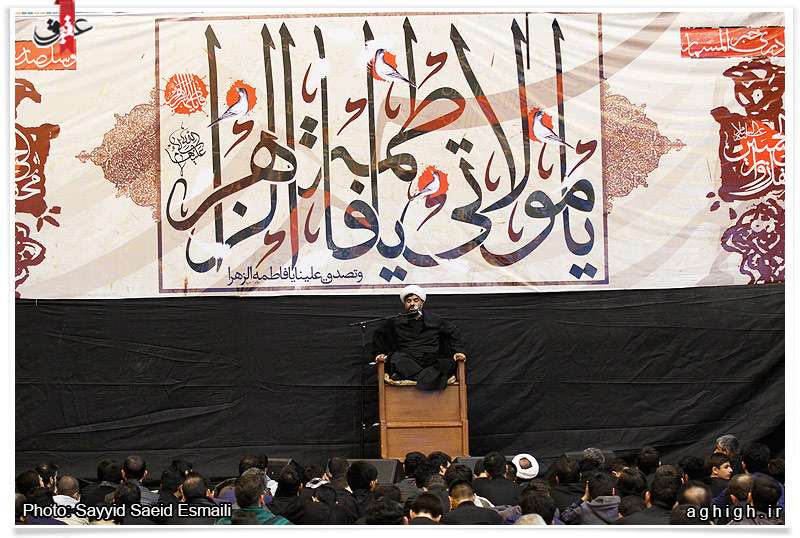 عقیق
دری خبر المسمار
وسل صد
یا مولاتی یا فاطمة الزهرا
وتصدق علینا یا فاطمه الزهرا
Photo: Sayyid Saeid Esmaili
aghigh.ir